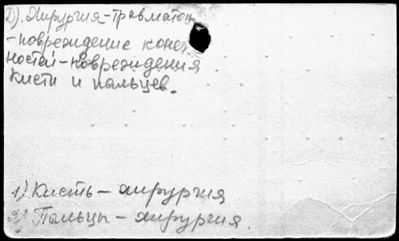 2). Хирургия-травматол
-повреждение конеч
ностей-повреждения
кисти и пальцев.
1) Кисть - хирургия
2) Пальцы - хирургия.